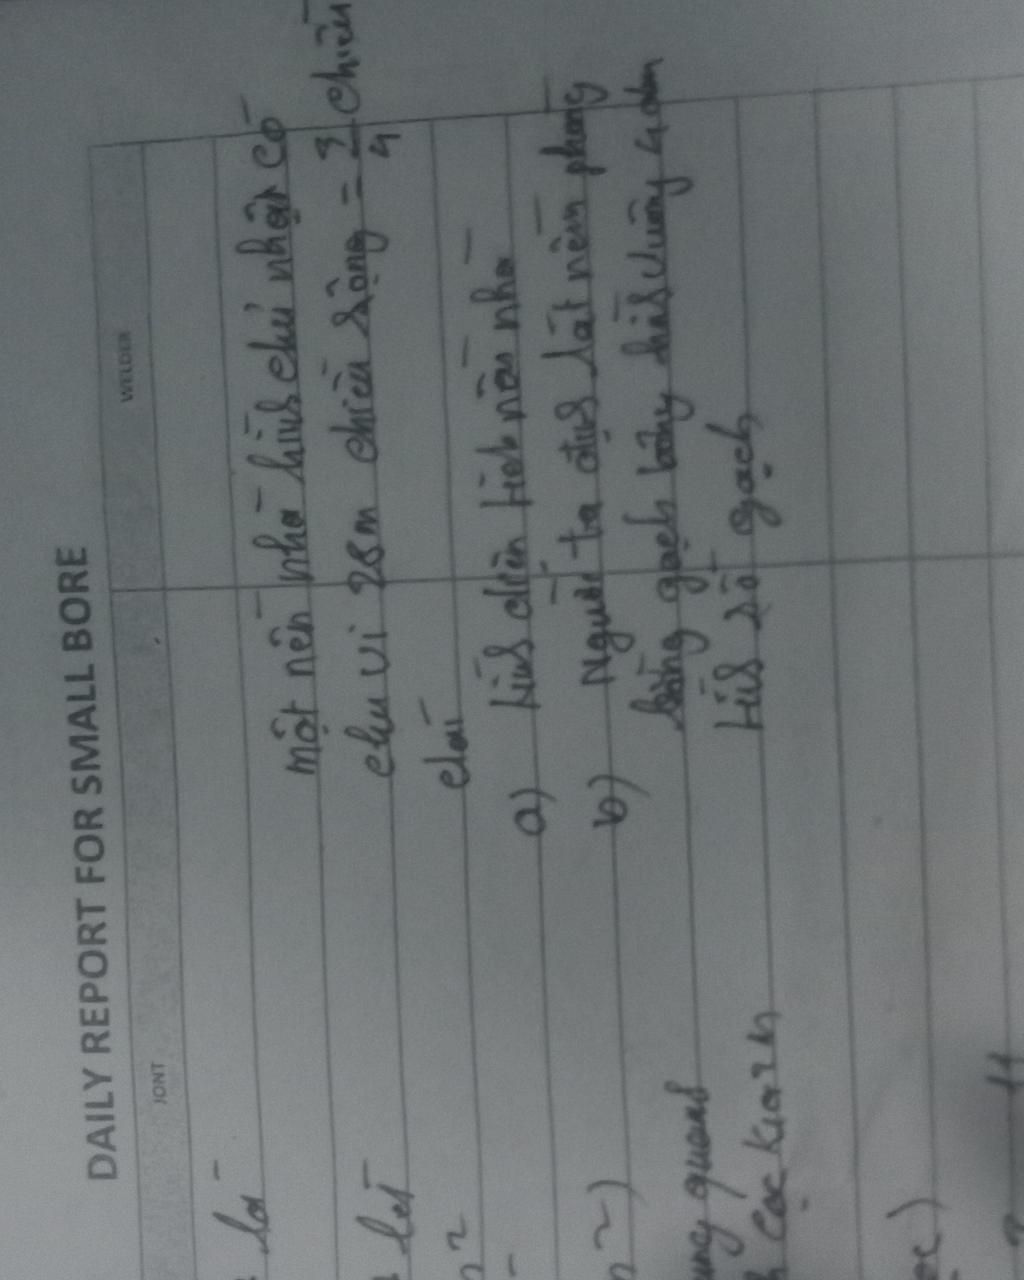 DAILY REPORT FOR SMALL BORE
JONT
WELDER
một nền nhà hình chữ nhật có
chu vi 28m chiều rộng = 3/4 chiều
dài
a) tính diện tích nền nhà
b) Người ta định lát nền phòng
bằng gạch bông hình vuông 4 dm
tính số gạch
là